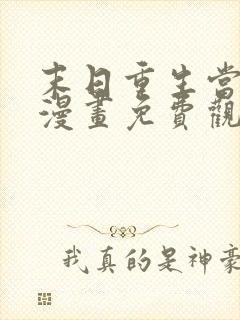 末日重生當
漫畫免費觀
我真的是神豪